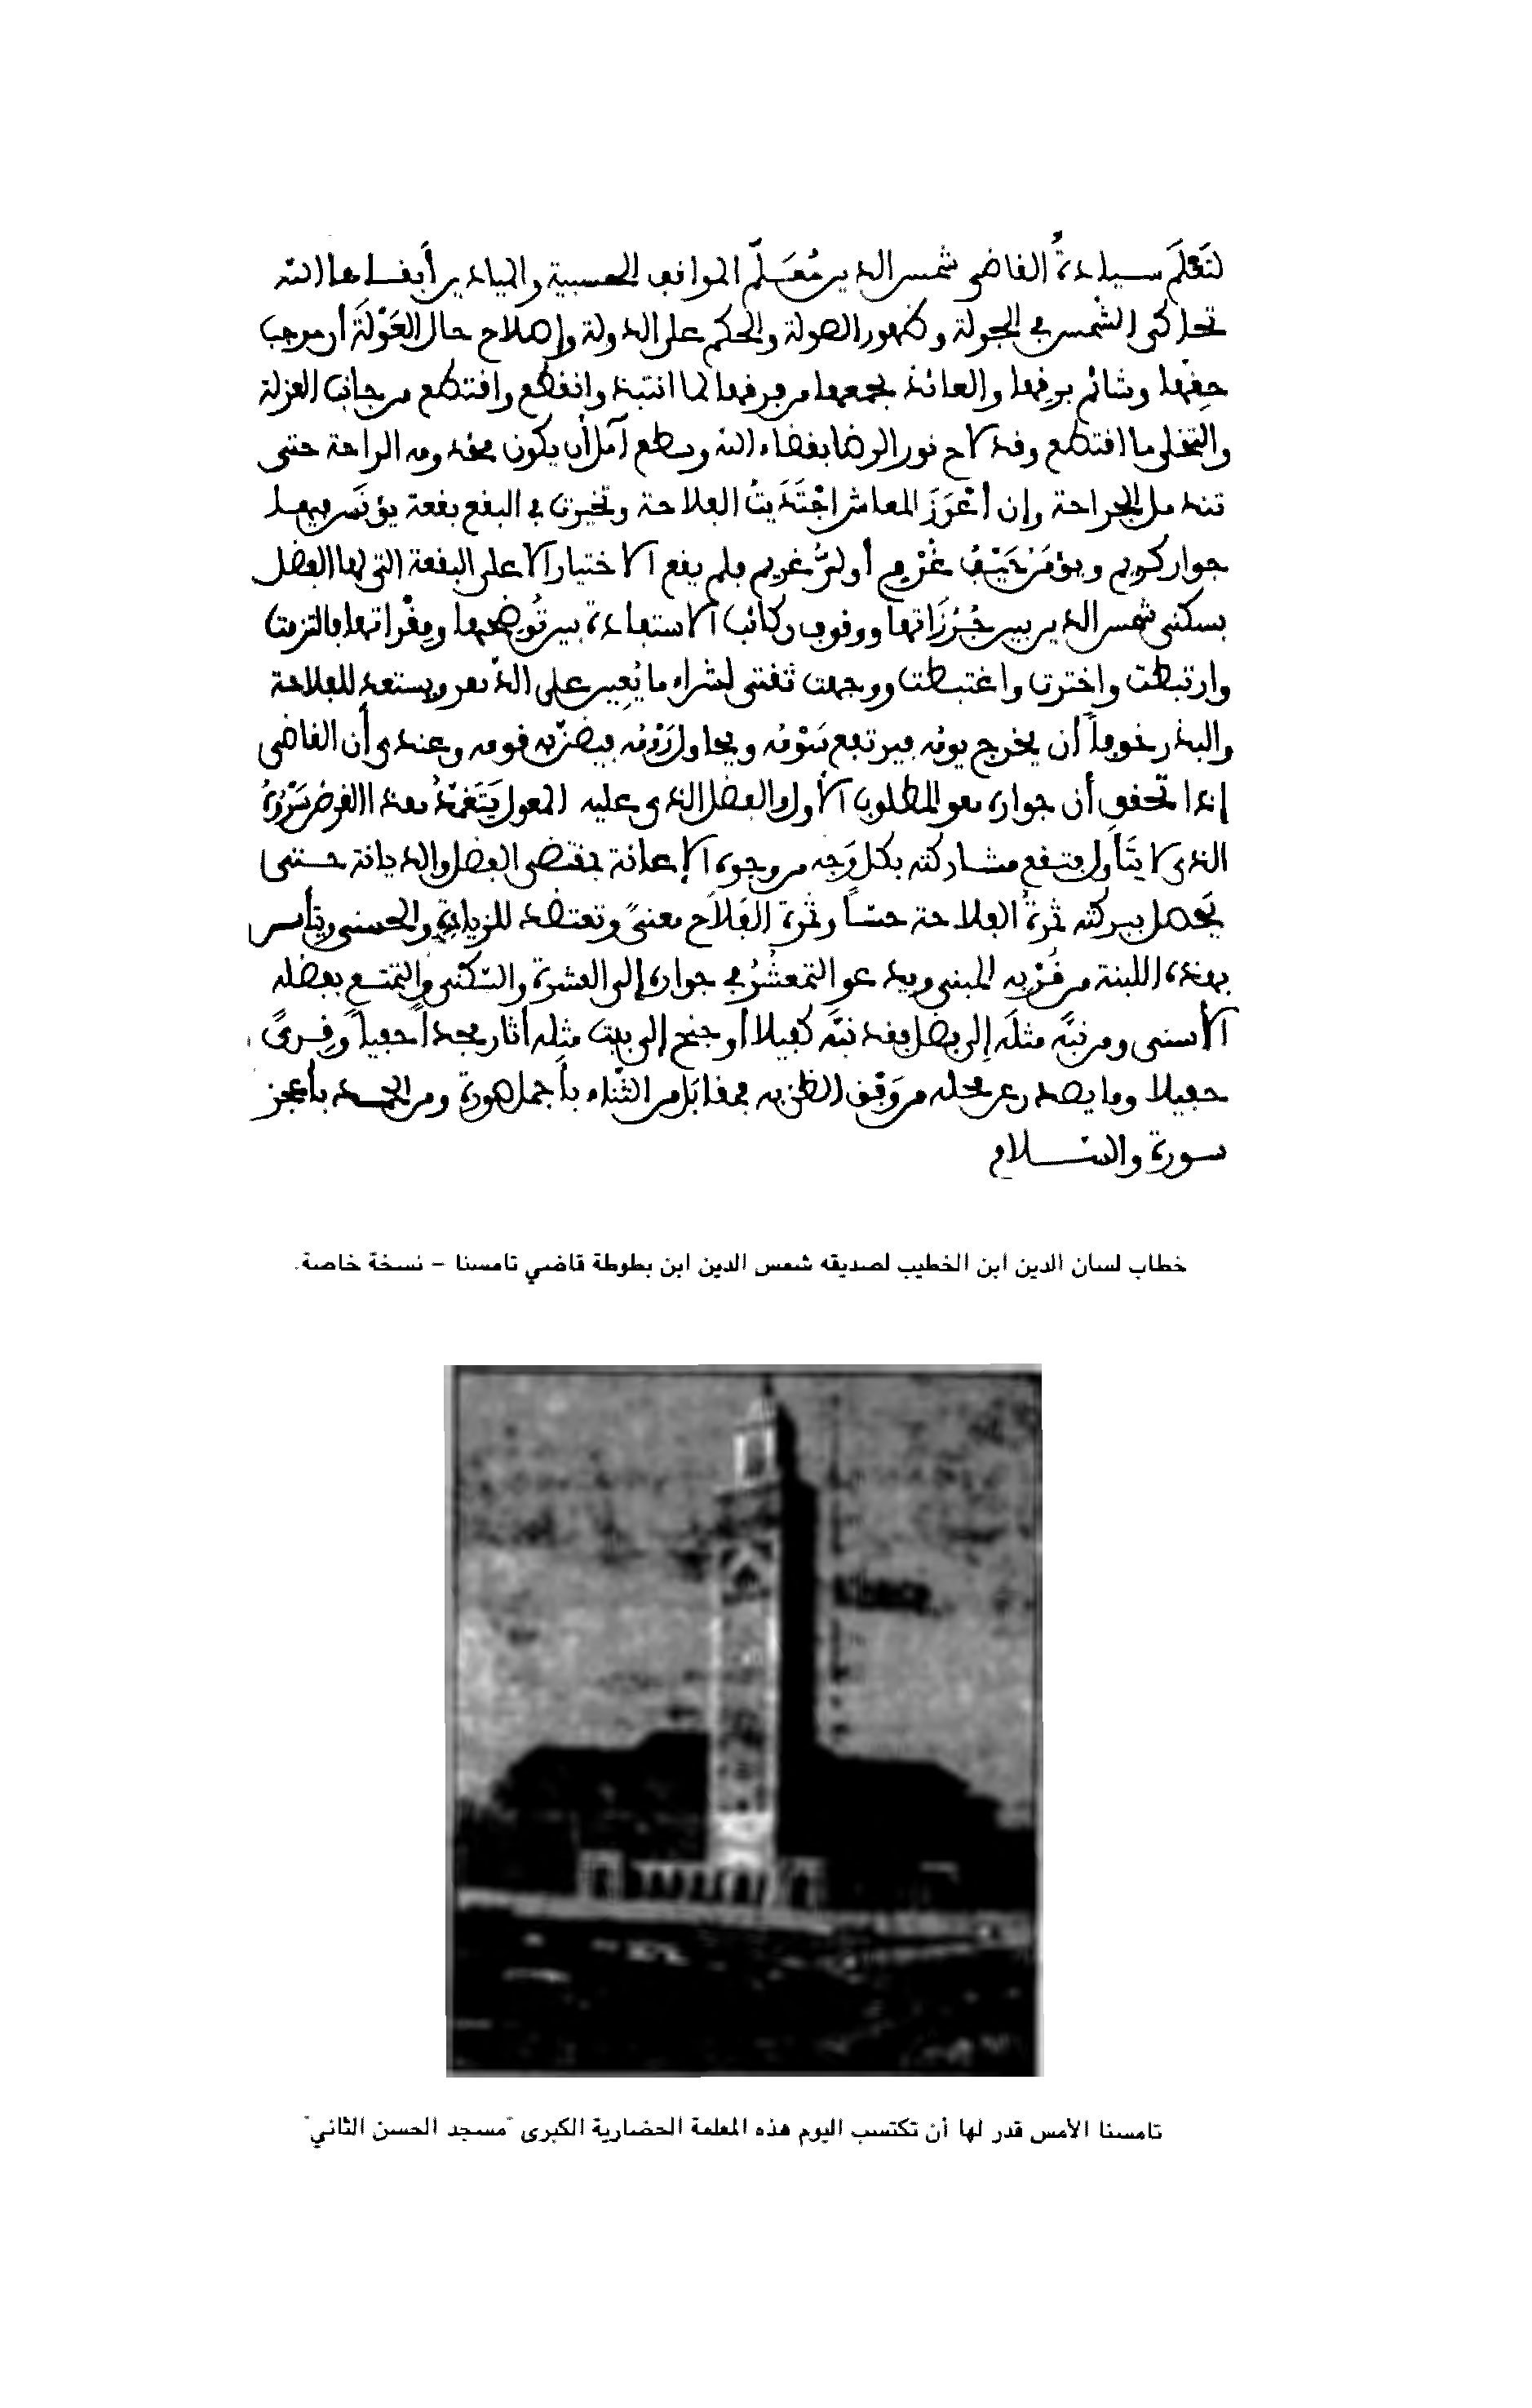 لتَعْلَمَ سيادةُ القاضي شمس الدين مُعَلِّم المواقف الحسبية والميادين أبقاها الله
تحاكى الشمس في الجولة وظهور الصولة والحكم على الدولة وإصلاح حال العَوْلَةَ أن موجب
حقِّها وشائم برقها والعائذ بجمعها من فرقها لما انتبذ وانقطع واقتطع من جانب العزلة
والتخلي ما اقتطع وقد لاح نور الرضا بقضاء الله وسطع آمل أن يكون مخدومه الراحة حتى
تندمل الجراحة وإن أعْوَزَ المعاش اجْتَدَيتُ الفلاحة وتخيرت في البقع بقعة يؤنس فيها
جوار كريم ويؤمَنُ حَيْفُ غُرْم أو لَزُّ غريم فلم يقع الاختيار الا على البقعة التي لها الفضل
بسكنى شمس الدين بين جُزَرَاتها ووقوف ركائب الاستفادة بين تُوضِحِها ومِقْراتها فالتزمت
وارتبطت واخترت واغتبطت ووجهت ثقتى لشراء ما يُعِين على الدهر ويستعد للفلاحة
والبذر خوفاً أن يخرج يومه فيرتفع سَوْمُه ويحاول رَوْمُه فيضنّ به قومه وعندى أن القاضي
إذا تحقق أن جواره هو المطلوب الأول والفضل الذى عليه المعول يَتَغَمَّدُ هذا الغرض سَرْوُهُ
الذى لا يتأول فتقع مشاركته بكل وَجه من وجوه الإعانة بمقتضى الفضل والديانة حتى
تحصل ببركته ثمرةُ الفلاحة حسّاً وثمرة الفَلَاح معنىً وتعتضد للزيادة والحسنى ويتأسس
بهذه اللبنة من قُرْبِه المبنى ويدعو التمعشُرُ في جواره إلى العشرة والسّكنى والتمتع بفضله
الأسنى ومن نبَّه مثلَه إلى فضل فقد نبَّه كفيلا أو جنح إلى بيت مثلِه أثار مجداً حفياً وقِرىً
حفيلا وما يصدر عن محله من وَفْق الظن به فمقابَل من الثّناء بأجمل صورة ومن الحمد بأعجز
سورة والسلام
خطاب لسان الدين ابن الخطيب لصديقه شمس الدين ابن بطوطة قاضي تامسنا – نسخة خاصة.
تامسنا الأمس قدر لها أن تكتسب اليوم هذه المعلمة الحضارية الكبرى "مسجد الحسن الثاني"